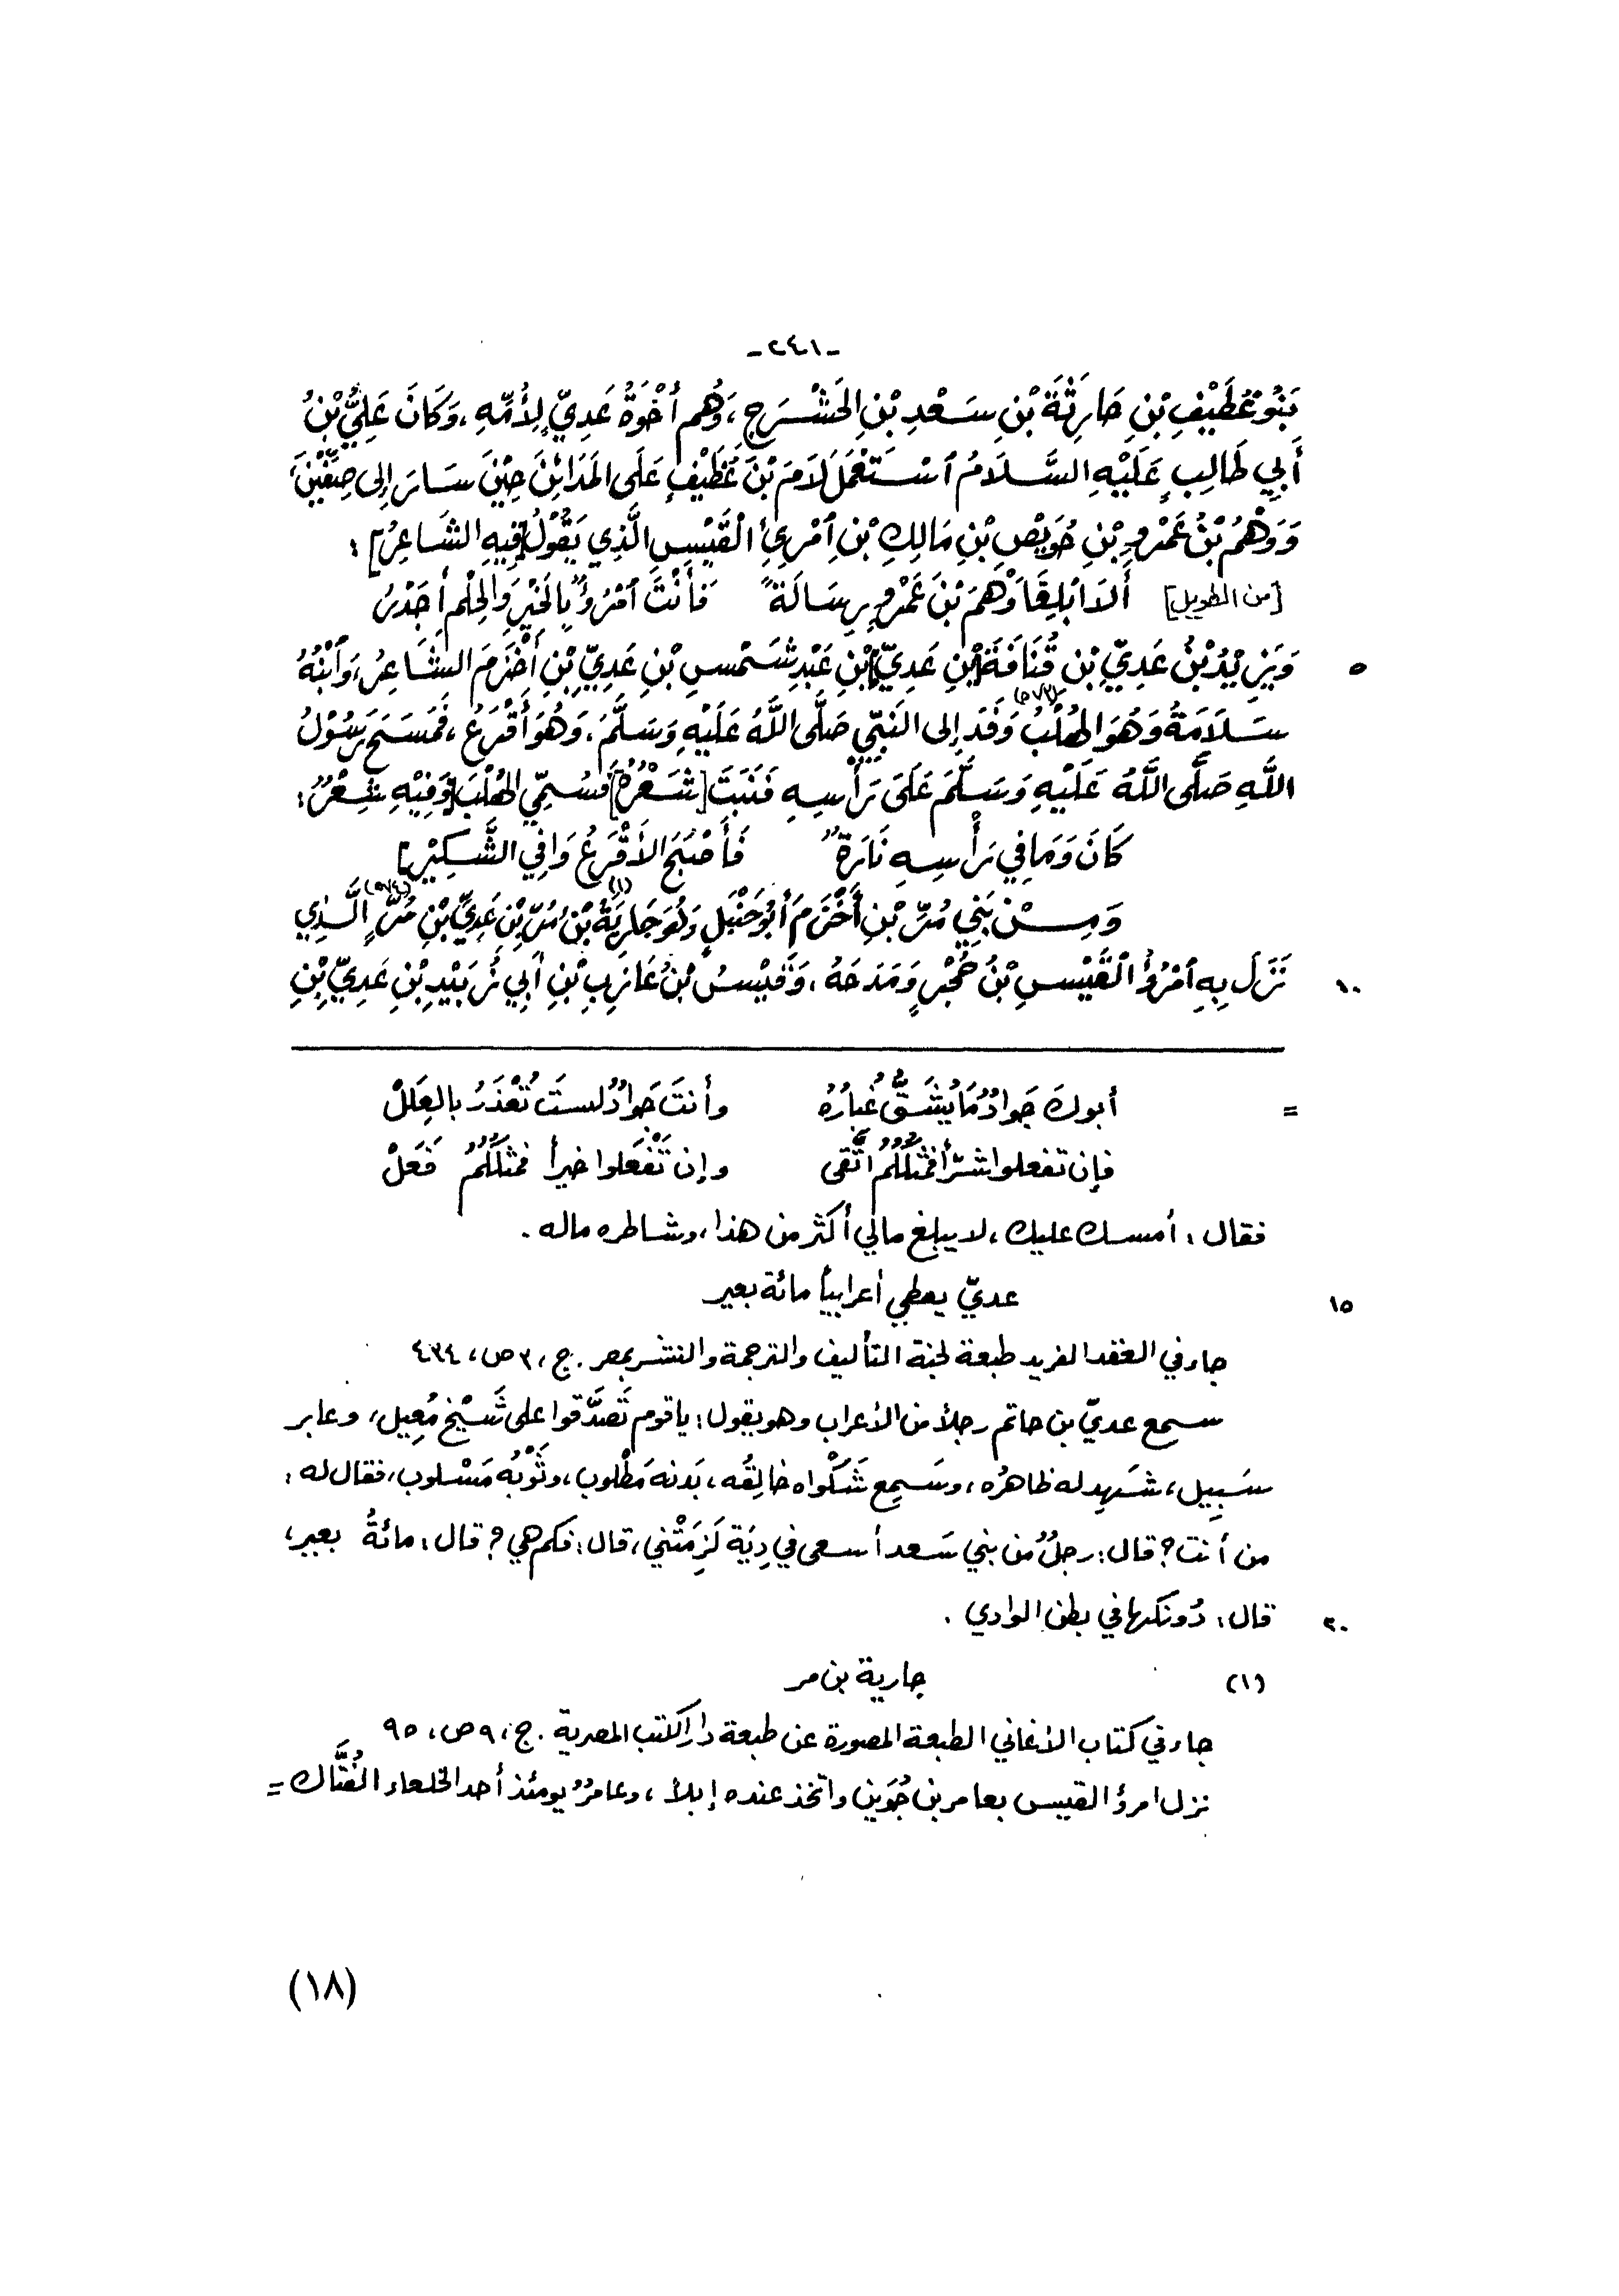 -٢٤١-
بَنُوْ غُطَيْفِ بْنِ حَارِثَةَ بْنِ سَعْدِ بْنِ الحَشْرَجِ، وَهُم أخْوَةُ عَدِيٍّ لِأُمِّهِ، وَكَانَ عَلِيُّ بْنُ
أَبِي طَالِبٍ عَلَيْهِ السَّلَامُ اَسْتَعْمَلَ لَامَ بْنَ غُطَيْفٍ عَلَى المَدَائِنَ حِيْنَ سَارَ إلى صِفِّيْنَ،
وَوَهْمُ بْنُ عَمْرِو بْنِ حُوَيْصِ بْنِ مَالِكِ بْنِ اَمْرِئِ القَيْسِ الَّذِي يَقُوْلُ [فِيهِ الشَّاعِرُ]:
[من الطويل] أَلاَ اَبْلِغَا وَهْمَ بْنَ عَمْرٍو رِسَالَةً فَأَنْتَ اَمْرُؤٌ بِالخَيْرِ وَالحِلْمِ أجْدَرُ
٥ وَيَزِيْدُ بْنُ عَدِيِّ بْنِ قُنَافَةَ [بْنِ عَدِيِّ] بْنِ عَبْدِ شَمْسِ بْنِ عَدِيِّ بْنِ أخْزَمَ الشَاعِرُ، وَابْنُهُ
سَلَامَةُ وَهُوَ الهُلْبُ (٥٧٣) وَفَدَ إلى النَبِيِّ صَلَّى اللَّهُ عَلَيْهِ وَسَلَّمَ، وَهُوَ أَقْرَعُ، فَمَسَحَ رَسُوْلُ
اللَّهِ صَلَّى اللَّهُ عَلَيْهِ وَسَلَّمَ عَلَى رَأسِهِ فَنَبَتَ [شَعْرُهُ] فَسُمِّيَ الهُلْبَ [وَفِيْهِ شِعْرٌ:
كَانَ وَمَا فِي رَأْسِهِ نَارَةٌ فَأَصْبَحَ الأَقْرَعُ وَافِي الشَّكِيْرِ]
وَمِنْ بَنِي مُرِّ بْنِ أَخْزَمَ أَبُو حَنْبَلٍ وَهُوَ جَارِيَةُ (١) بْنُ مُرِّ بْنِ عَدِيِّ بْنِ مُرٍّ (٥٧٤) الَّذِي
١٠ نَزَلَ بِهِ اَمْرُؤُ القَيْسِ بْنُ حُجْرٍ وَمَدَحَهُ، وَقَيْسُ بْنُ عَازِبِ بْنِ أبِي زُبَيْدِ بْنِ عَدِيِّ بْنِ
= أبوكَ جَوادٌ مَا يُشَقُّ غُبارُهُ وأنتَ جَوادٌ لستَ تُعْذَرُ بالعِلَلْ
فإن تفعلوا شرّاً فمثلُكُمُ اتَّقى وإن تَفْعَلوا خيراً فمثلُكُمُ فَعَلْ
فقال: أمسك عليك، لا يبلغ مالي أكثر من هذا، وشاطره ماله.
١٥ عديّ يعطي أعرابياً مائة بعير
جاء في العقد الفريد طبعة لجنة التأليف والترجمة والنشر بمصر. ج، ٣ ص، ٤٣٤
سمع عديّ بن حاتم رجلاً من الأعراب وهو يقول: يا قوم تَصدَّقوا على شَيْخ مُعِيل، وعابر
سَبِيل، شَهِد له ظاهرُه، وسَمِع شَكْواه خالِقُه، بَدنه مَطْلوب، وثَوْبُه مَسْلوب، فقال له:
من أنت؟ قال: رجلٌ من بني سَعد أسعى في دِيَة لَزِمَتْني، قال: فكم هي؟ قال: مائةُ بعير،
٢٠ قال: دُونكها في بطن الوادي.
(١) جارية بن مر
جاء في كتاب الأغاني الطبعة المصورة عن طبعة دار الكتب المصرية. ج، ٩ ص، ٩٥
نزل امرؤ القيس بعامر بن جُوَين واتخذ عنده إبلاً، وعامرٌ يومئذ أحد الخلعاء الفُتَّاك =
(١٨)